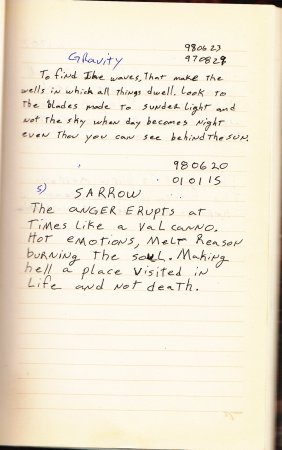 980623
Gravity 970829
To find the waves, That make the
wells in which all things dwell. Look to
The Blades made to sunder Light and
not the sky when day becomes night
even Thow you can see behind the sun.
980620
5) 010115
SARROW
The ANGER ERUPTS at
Times Like a ValCanno.
Hot emotions, Melt Reason
burning The soul. Making
hell a place Visited in
Life and not death.